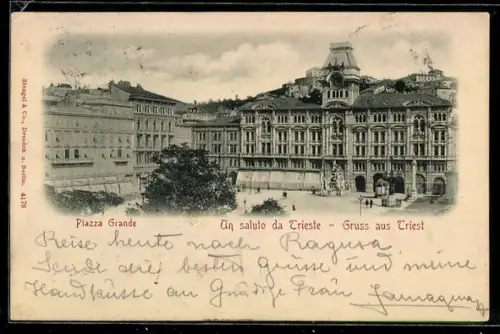 Stengel & Co., Dresden u. Berlin. 4178
Piazza Grande
Un saluto da Trieste - Gruss aus Triest
Reise heute nach Ragusa
Sende die besten Grüsse und meine
Handküsse an Gnädige Frau